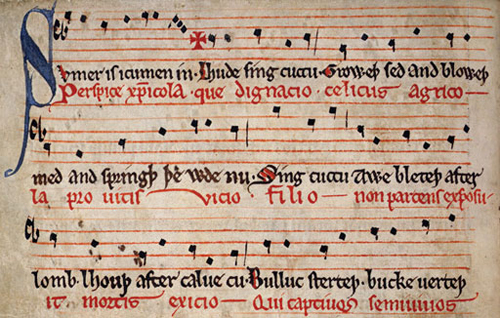 Sumer is icumen in. Lhude sing cuccu. Groweþ sed and bloweþ
Perspice xp̄icola. que dignacio. celicus agrico
med and springþ þe wde nu. Sing cuccu Awe bleteþ after
la pro uitis vicio. filio non parcens exposu
lomb. lhouþ after calue cu. Bulluc sterteþ. bucke uerteþ
it mortis exicio Qui captiuos semiuiuos